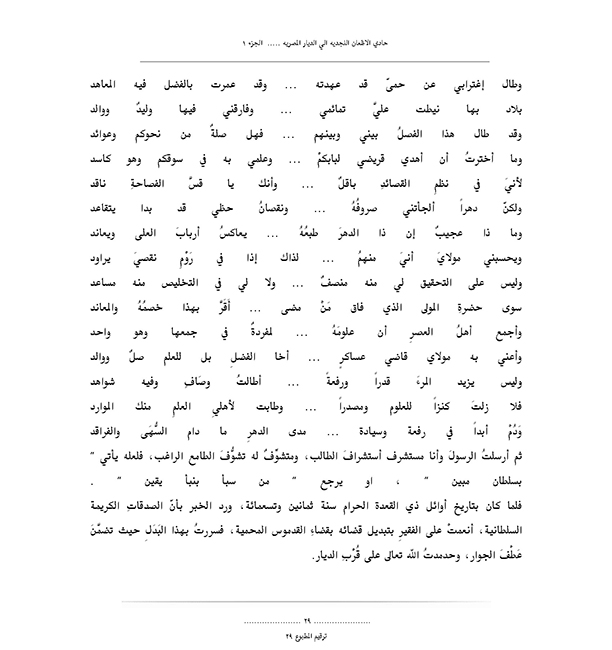 حادي الاظعان النجديه الي الديار المصريه ..... الجزء ١
وطال إغترابي عن حمىً قد عهدته ... وقد عمرت بالفضل فيه المعاهد
بلاد بها نيطت عليَّ تمائمي ... وفارقني فيها وليدٌ ووالد
وقد طال هذا الفصلُ بيني وبينهم ... فهل صلةٌ من نحوكم وعوائد
وما أخترتُ أن أهدي قريضي لبابكمْ ... وعلمي به في سوقكم وهو كاسد
لأنيَ في نظمِ القصائدِ باقلٌ ... وأنك يا قسَّ الفصاحةِ ناقد
ولكنّ دهراً ألجأتني صروفُهُ ... ونقصانُ حظي قد بدا يتقاعد
وما ذا عجيبٌ إن ذا الدهرَ طبعُهُ ... يعاكسُ أربابَ العلى ويعاند
ويحسبني مولايَ أنيَ منهمُ ... لذاك إذا في رَوْمِ نقصيَ يراود
وليس على التحقيق لي منه منصفٌ ... ولا لي في التخليص منه مساعد
سوى حضرةِ المولى الذي فاق مَنْ مضى ... أقَرَّ بهذا خصمُهُ والمعاند
وأجمع أهلُ العصرِ أن علومَهُ ... لمفردةٌ في جمعها وهو واحد
وأعني به مولاي قاضي عساكرٍ ... أخا الفضلِ بل للعلم صلٌ ووالد
وليس يزيد المرءَ قدراً ورفعةً ... أطالتُ وصَافٍ وفيه شواهد
فلا زلتَ كنزاً للعلوم ومصدراً ... وطابت لأهليِ العلمِ منك الموارد
وَدُمْ أبداً في رفعة وسيادة ... مدى الدهرِ ما دام السُّهَى والفراقد
ثم أرسلتُ الرسولَ وأنا مستشرف أستشرافَ الطالب، ومتشوّفٌ له تشوُّفَ الطامع الراغب، فلعله يأتي "
بسلطان مبين " ، او يرجع " من سبأ بنبأ يقين " .
فلما كان بتاريخ أوائل ذي القعدة الحرام سنة ثمانين وتسعمائة، ورد الخبر بأنّ الصدقاتِ الكريمة
السلطانية، أنعمتْ على الفقيرِ بتبديل قضائه بقضاءِ القدموس المحمية، فسررتُ بهذا البَدَلِ حيث تضمَّنَ
عَطْفَ الجوار، وحدمدتُ اللّه تعالى على قُرْبِ الديار.
....................... ٢٩ .......................
ترقيم المطبوع ٢٩